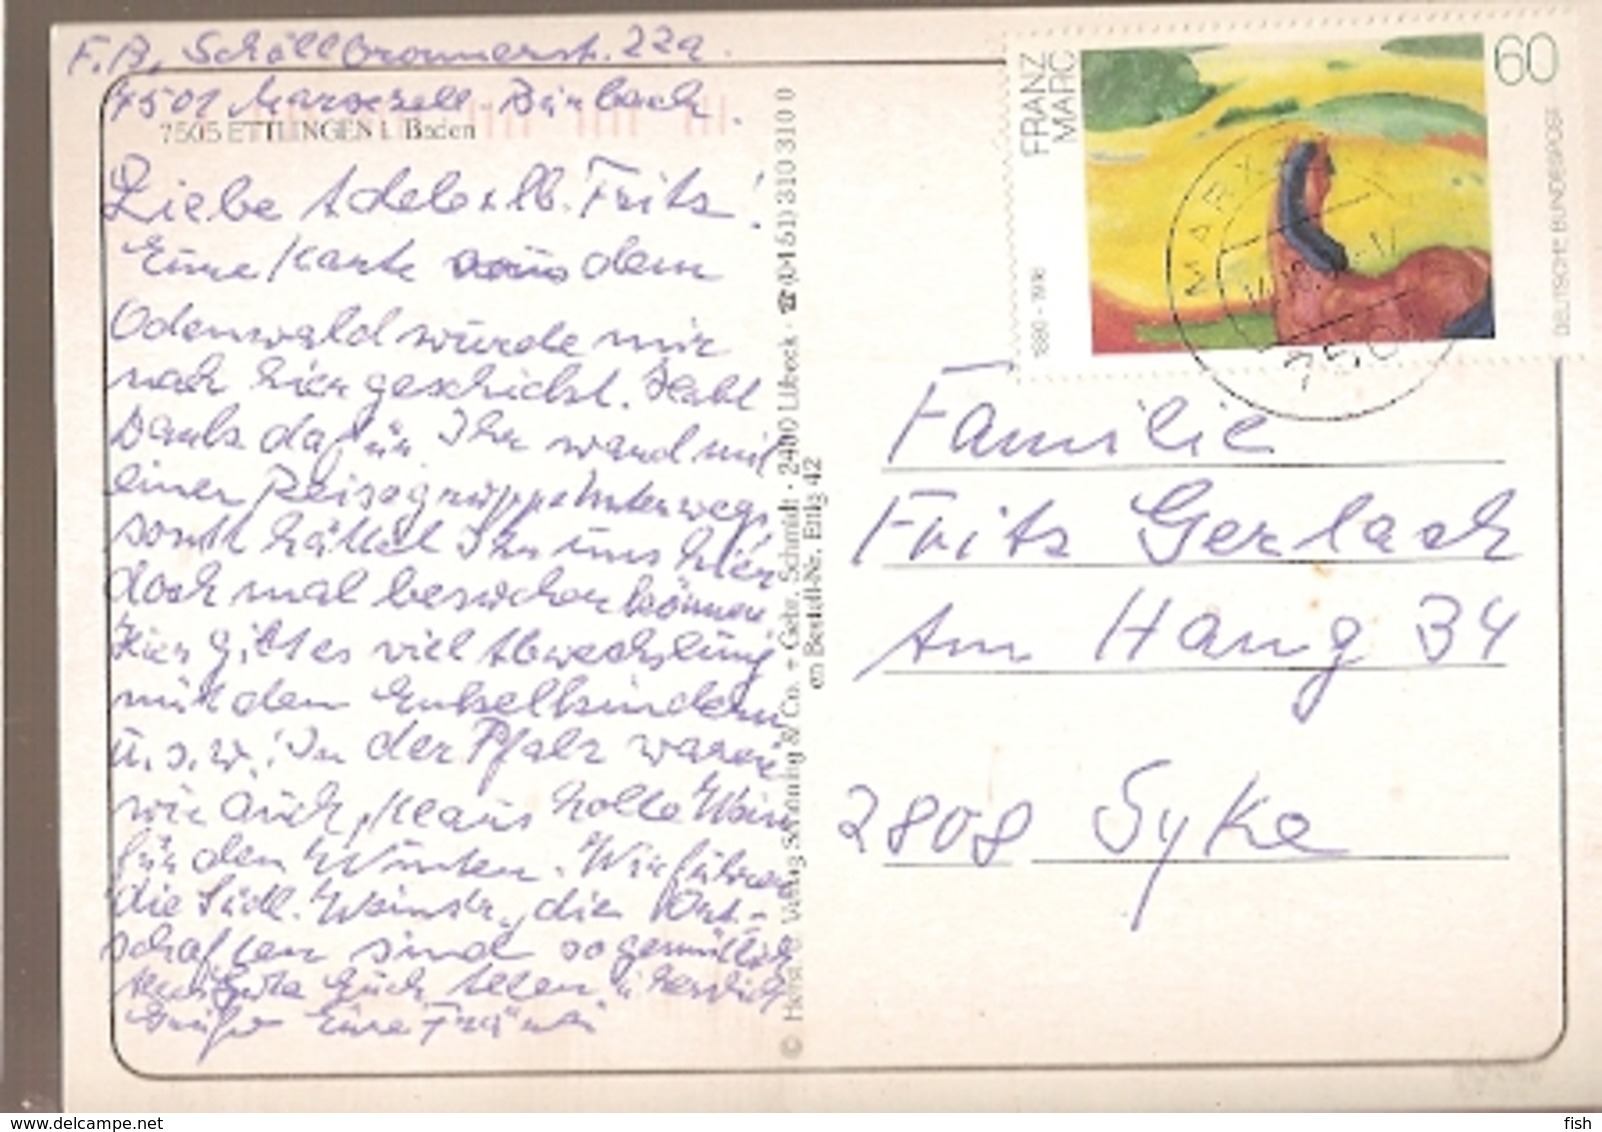 F.B. Schöllbronnerstr. 22a.
7501 Marxzell-Burbach.
7505 ETTLINGEN i. Baden
Liebe Adele u. lb. Fritz!
Eine Karte aus dem
Odenwald wurde mir
nach hier geschickt. Habt
Dank dafür. Ihr ward mit
einer Reisegruppe unterwegs,
sonst hättet Ihr uns hier
doch mal besuchen können.
Hier gibt es viel Abwechslung
mit den Enkelkindern
u.s.w. In der Pfalz waren
wir auch, Klaus holte Wein
für den Winter. Wir fuhren
die Südl. Weinstr., die Ort-
schaften sind so gemütlich
Alles Gute Euch Allen u. herzlich
Grüße Eure
© Horst G. Verlag Schöning & Co. + Gebr. Schmidt · 2400 Lübeck · ☎ (04 51) 310 310 0
en Bestell-Nr. Ettlg 42
FRANZ
MARC
1880 - 1916
60
DEUTSCHE BUNDESPOST
MARX
7501
Familie
Fritz Gerlach
Am Hang 34
2808 Syke
www.delcampe.net
fish